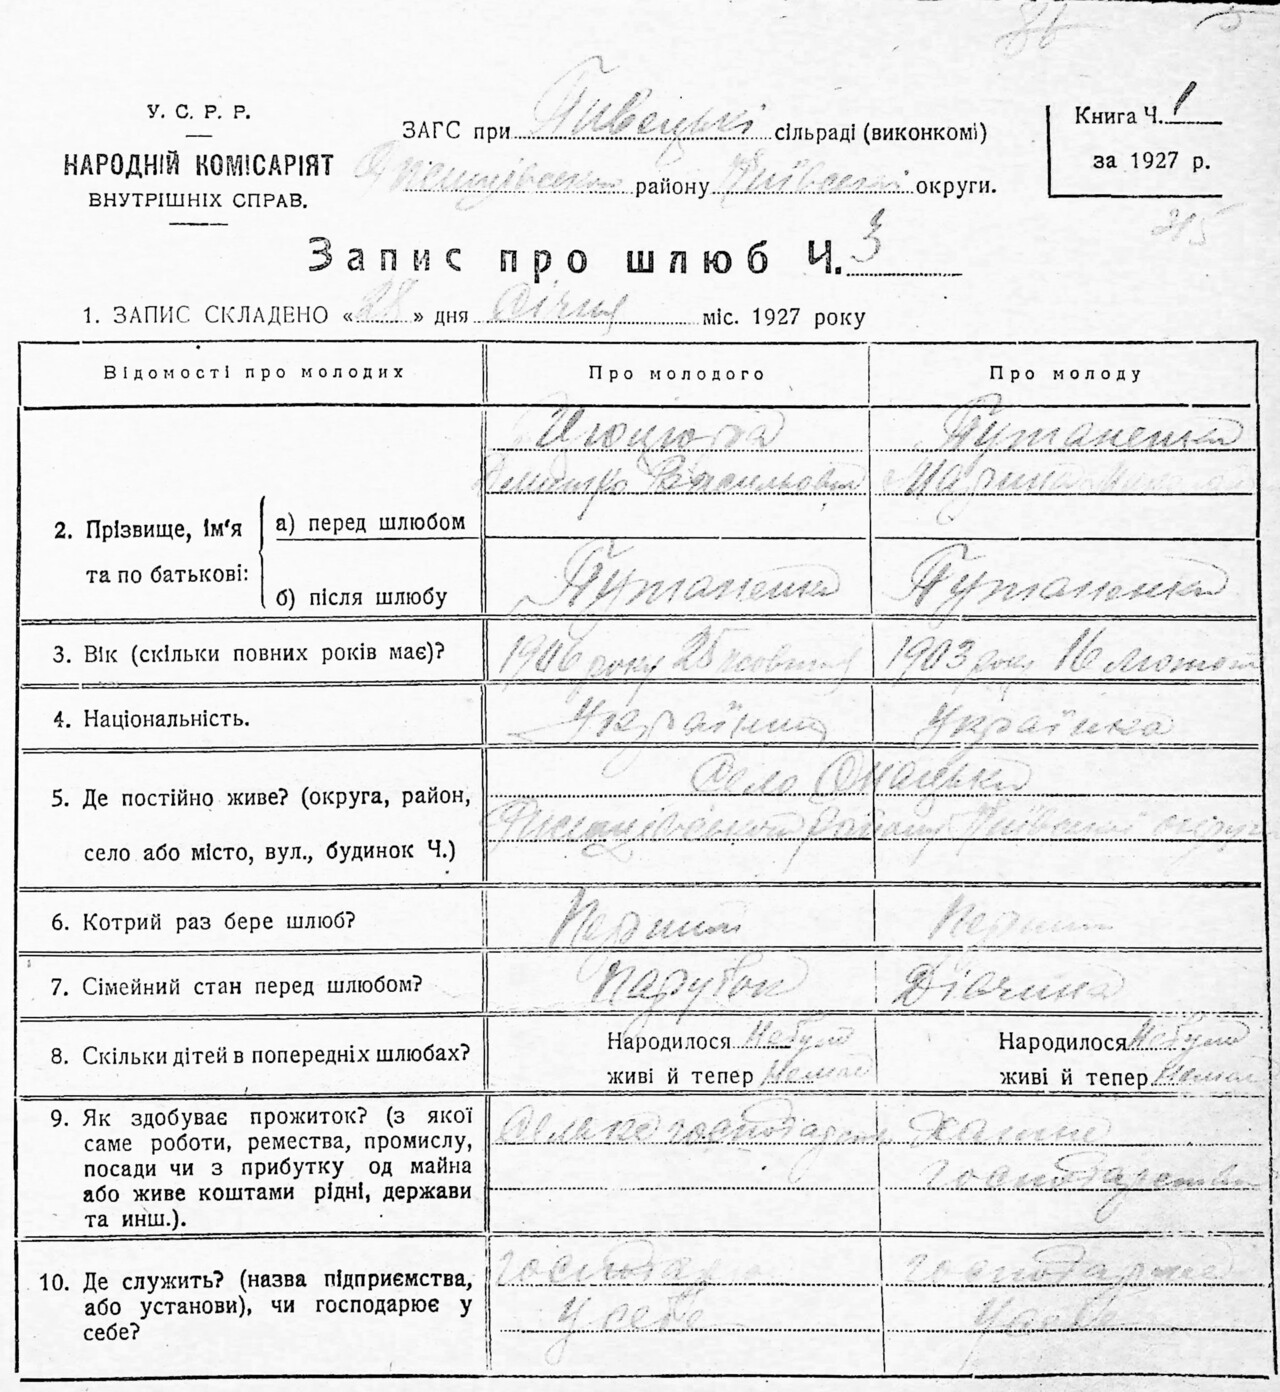 86 5
У. С. Р. Р.
НАРОДНІЙ КОМІСАРІЯТ
ВНУТРІШНІХ СПРАВ.
ЗАГС при Пивецькі сільраді (виконкомі)
району Київської округи.
Книга Ч. 1
за 1927 р.
215
Запис про шлюб Ч. 3
1. ЗАПИС СКЛАДЕНО «28» дня Січня міс. 1927 року
Відомості про молодих Про молодого Про молоду
2. Прізвище, ім'я та по батькові:
а) перед шлюбом
Путаненка
Дмитро Васильович Марина
б) після шлюбу
Путаненка Путаненка
3. Вік (скільки повних років має)? 1906 року 25 жовтня 1903 року 16 лютого
4. Національність. Українець Українка
5. Де постійно живе? (округа, район,
село або місто, вул., будинок Ч.)
Село
району Київської округи
6. Котрий раз бере шлюб? Перший Перший
7. Сімейний стан перед шлюбом? Парубок Дівчина
8. Скільки дітей в попередніх шлюбах?
Народилося Небуло Народилося Небуло
живі й тепер Немає живі й тепер Немає
9. Як здобуває прожиток? (з якої
саме роботи, ремества, промислу,
посади чи з прибутку од майна
або живе коштами рідні, держави
та инш.).
господарств
господарства
10. Де служить? (назва підприємства,
або установи), чи господарює у
себе?
господар
У себе У себе